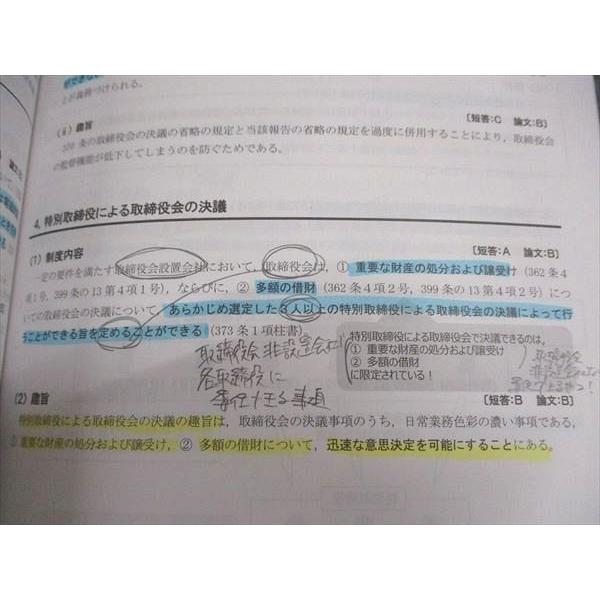 とが義務づけられる。
(ⅱ) 趣旨
[短答:C 論文:B]
370 条の取締役会の決議の省略の規定と当該報告の省略の規定を過度に併用することにより，取締役会
の監督機能が低下してしまうのを防ぐためである。
4. 特別取締役による取締役会の決議
(1) 制度内容
[短答:A 論文:B]
一定の要件を満たす取締役会設置会社において，取締役会は，① 重要な財産の処分および譲受け (362 条 4
項 1 号，399 条の 13 第 4 項 1 号)，ならびに，② 多額の借財 (362 条 4 項 2 号，399 条の 13 第 4 項 2 号) につ
いての取締役会の決議について，あらかじめ選定した3人以上の特別取締役による取締役会の決議によって行
うことができる旨を定めることができる (373 条 1 項柱書)。
特別取締役による取締役会で決議できるのは，
① 重要な財産の処分および譲受け
② 多額の借財
に限定されている！
取締役会非設置会社
各取締役に
委任できる事項
取締役
非設置会社
(2) 趣旨
[短答:B 論文:B]
特別取締役による取締役会の決議の趣旨は，取締役会の決議事項のうち，日常業務色彩の濃い事項である，
① 重要な財産の処分および譲受け，② 多額の借財について，迅速な意思決定を可能にすることにある。